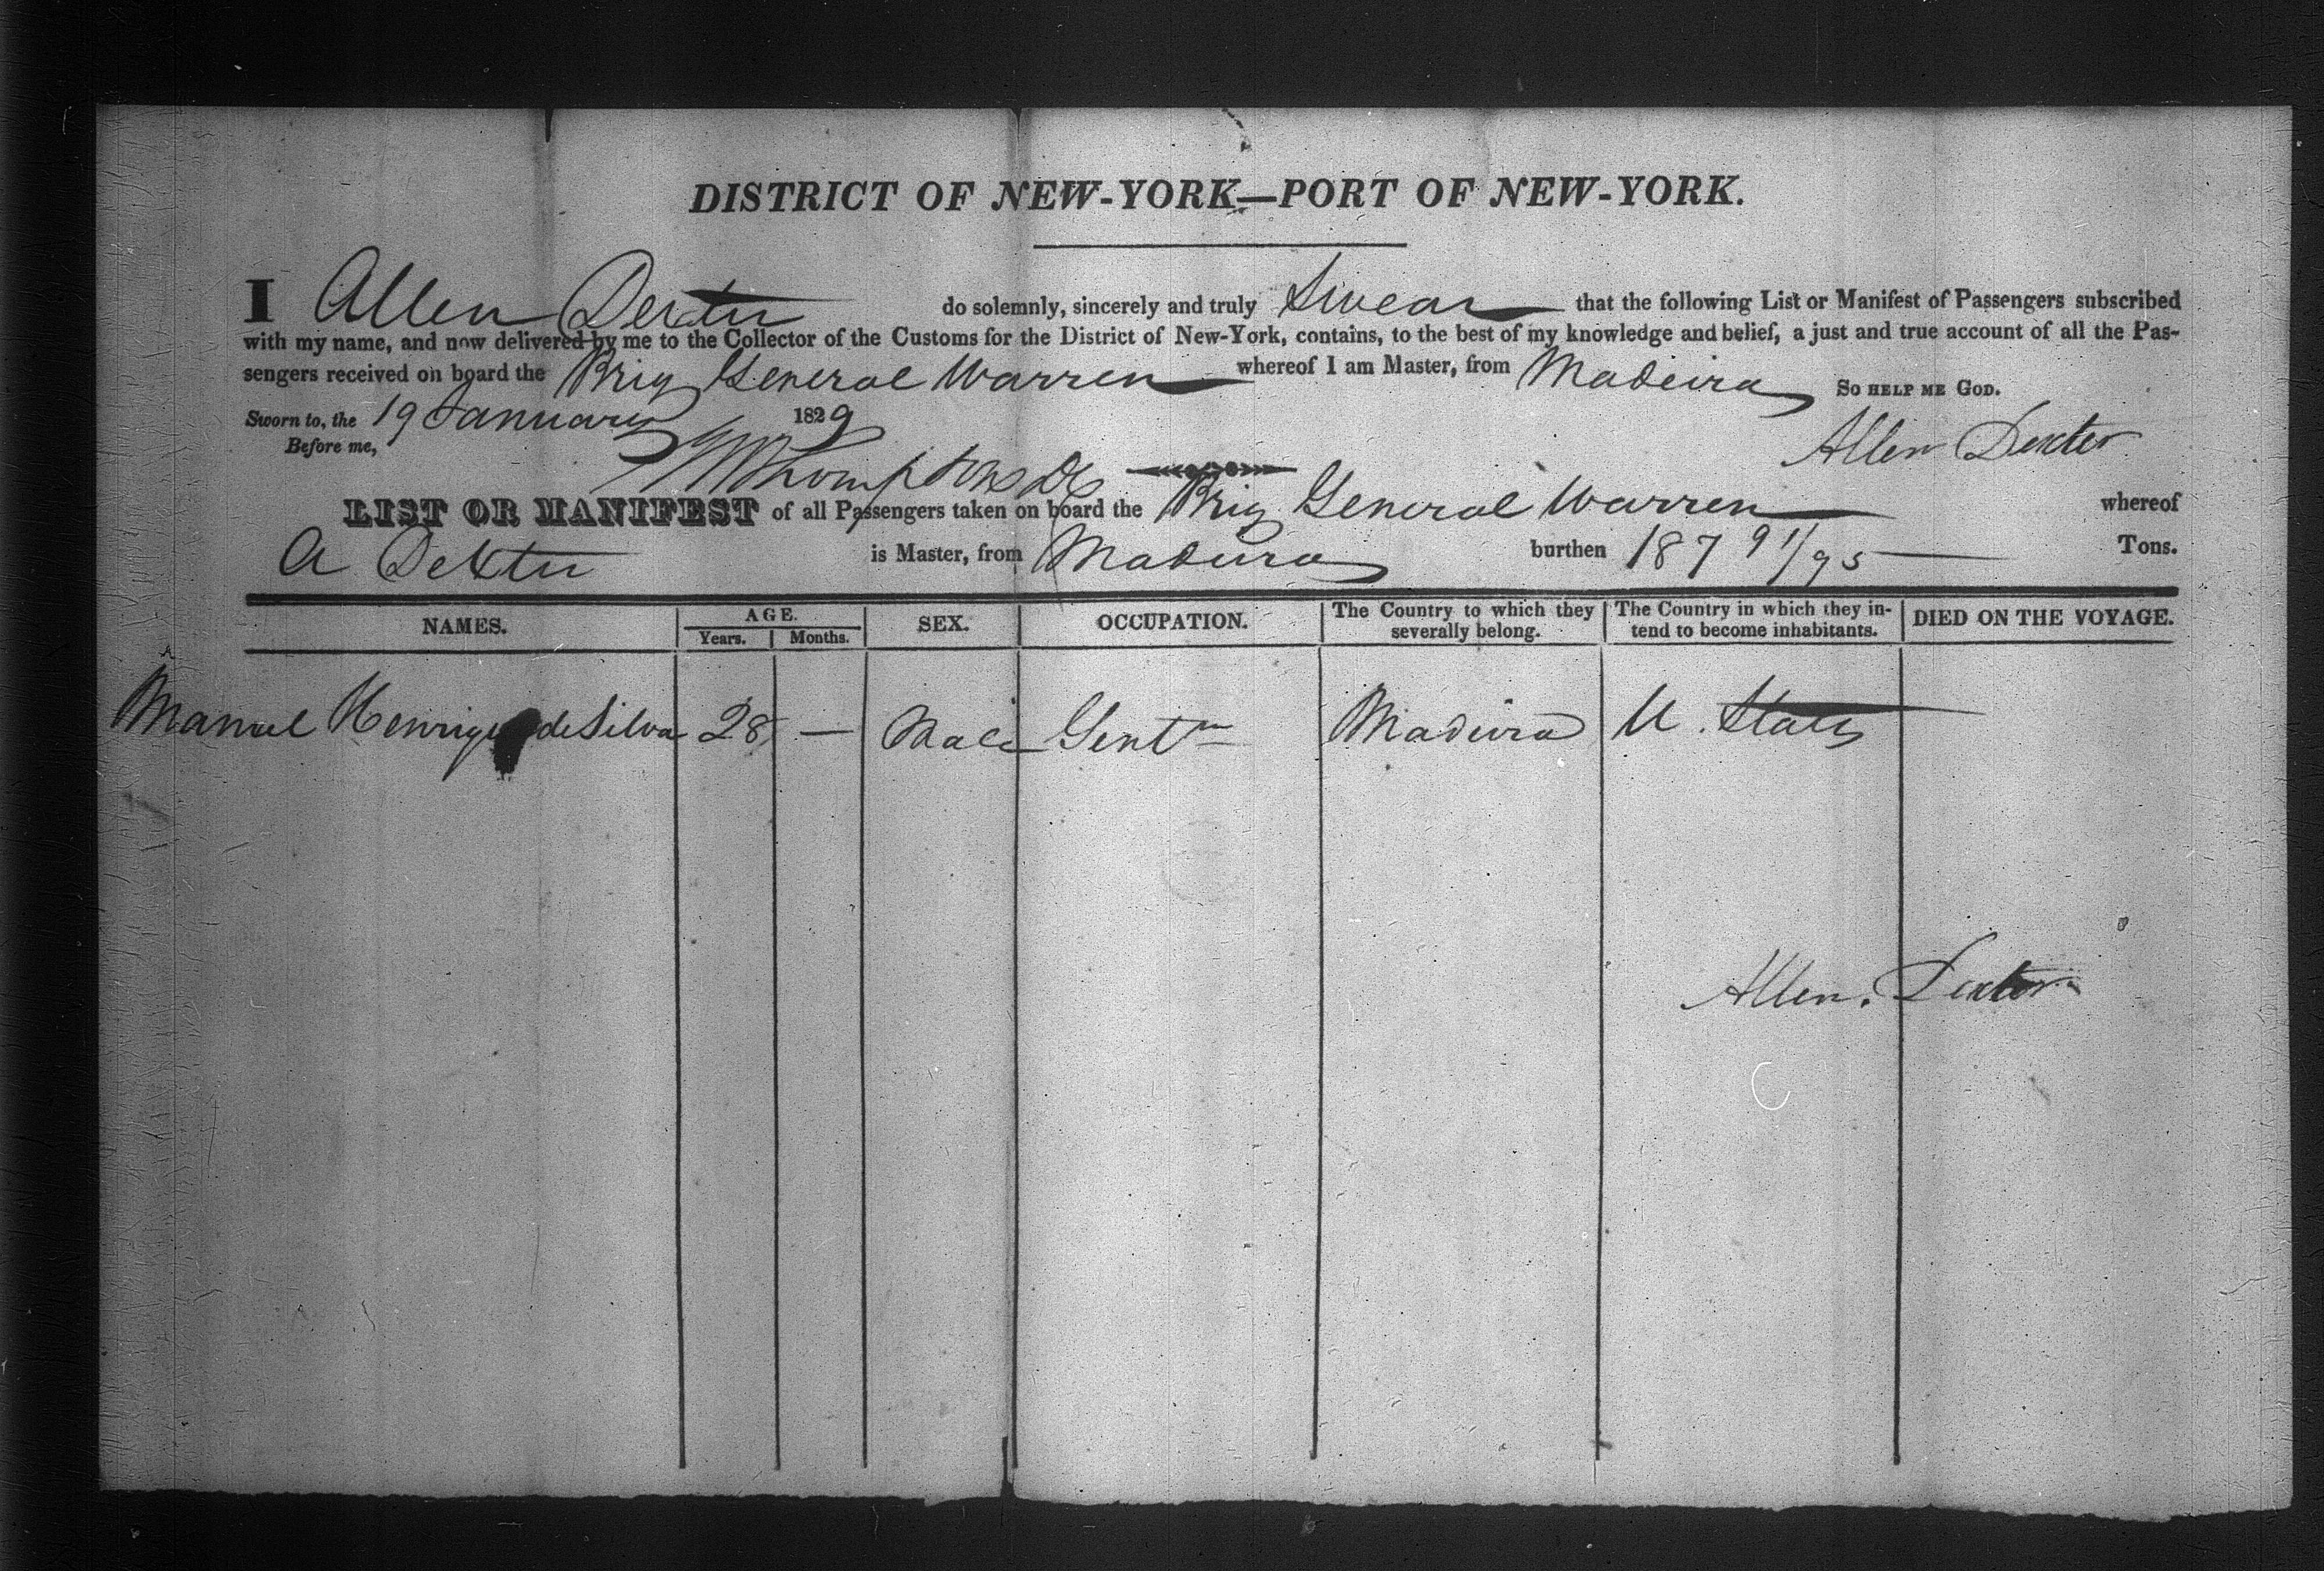 DISTRICT OF NEW-YORK—PORT OF NEW-YORK.
I Allen Dexter do solemnly, sincerely and truly Swear that the following List or Manifest of Passengers subscribed
with my name, and now delivered by me to the Collector of the Customs for the District of New-York, contains, to the best of my knowledge and belief, a just and true account of all the Pas-
sengers received on board the Brig General Warren whereof I am Master, from Madeira So HELP ME GOD.
Sworn to, the 19 January 1829
Before me, Allen Dexter
Thompson
LIST OR MANIFEST of all Passengers taken on board the Brig General Warren whereof
A Dexter is Master, from Madeira burthen 187 91/95 Tons.
NAMES. AGE. Years. Months. SEX. OCCUPATION. The Country to which they severally belong. The Country in which they in-tend to become inhabitants. DIED ON THE VOYAGE.
Manuel Henrique de Silva 28 — Male Gentm Madeira U. States
Allen. Dexter